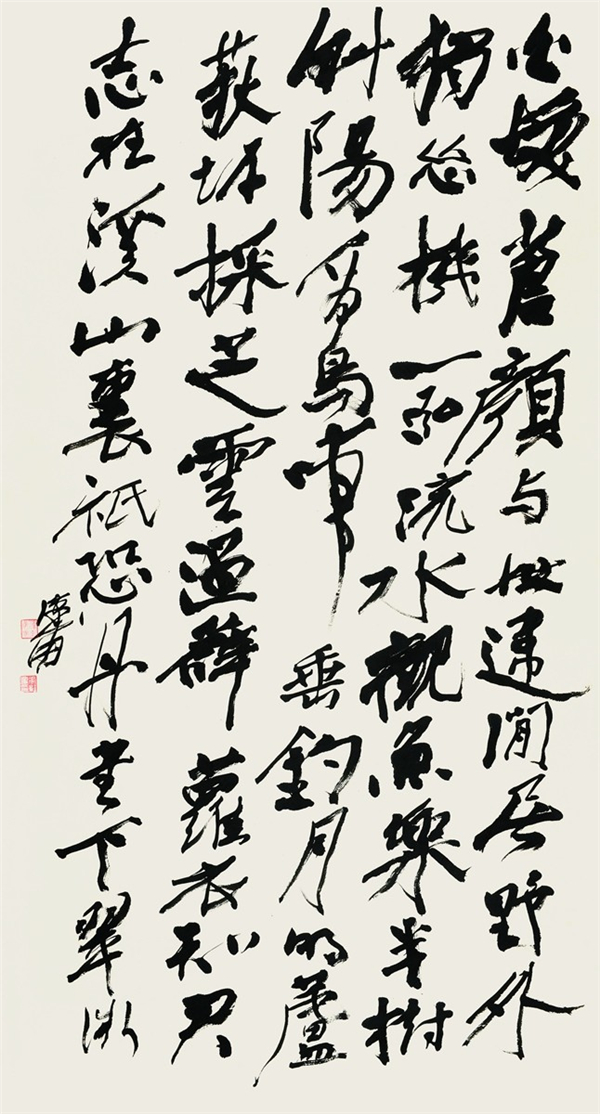 白髮蒼顏與世違閒居野外
獨忘機一流水觀魚樂半樹
斜陽看鳥歸垂釣月明蘆
荻岸採芝雲過薜蘿衣知君
志在溪山裏祇恐丹書下翠微